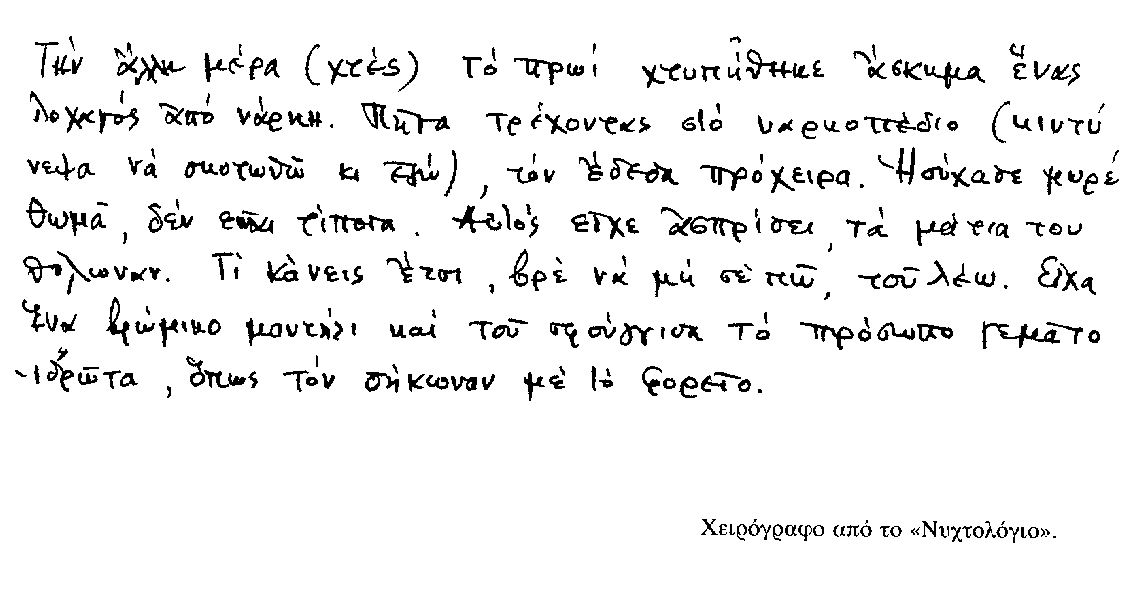 Τὴν ἄλλη μέρα (χτὲς) τὸ πρωί χτυπήθηκε ἄσκημα ἕνας
λοχαγός ἀπό νάρκη. Πῆγα τρέχοντας στό ναρκοπέδιο (κιντύ
νεψα νά σκοτωθῶ κι ἐγώ), τόν ἔδεσα πρόχειρα. Ἡσύχασε μωρέ
Θωμᾶ, δέν εἶναι τίποτα. Αὐτός εἶχε ἀσπρίσει, τά μάτια του
θολώναν. Τί κάνεις ἔτσι, βρὲ νά μή σὲ πῶ, τοῦ λέω. Εἶχα
ἕνα βρώμικο μαντήλι καί τοῦ σφούγγισα τό πρόσωπο γεμάτο
ἱδρῶτα, ὅπως τόν σήκωναν μὲ τό φορεῖο.
Χειρόγραφο από το «Νυχτολόγιο».